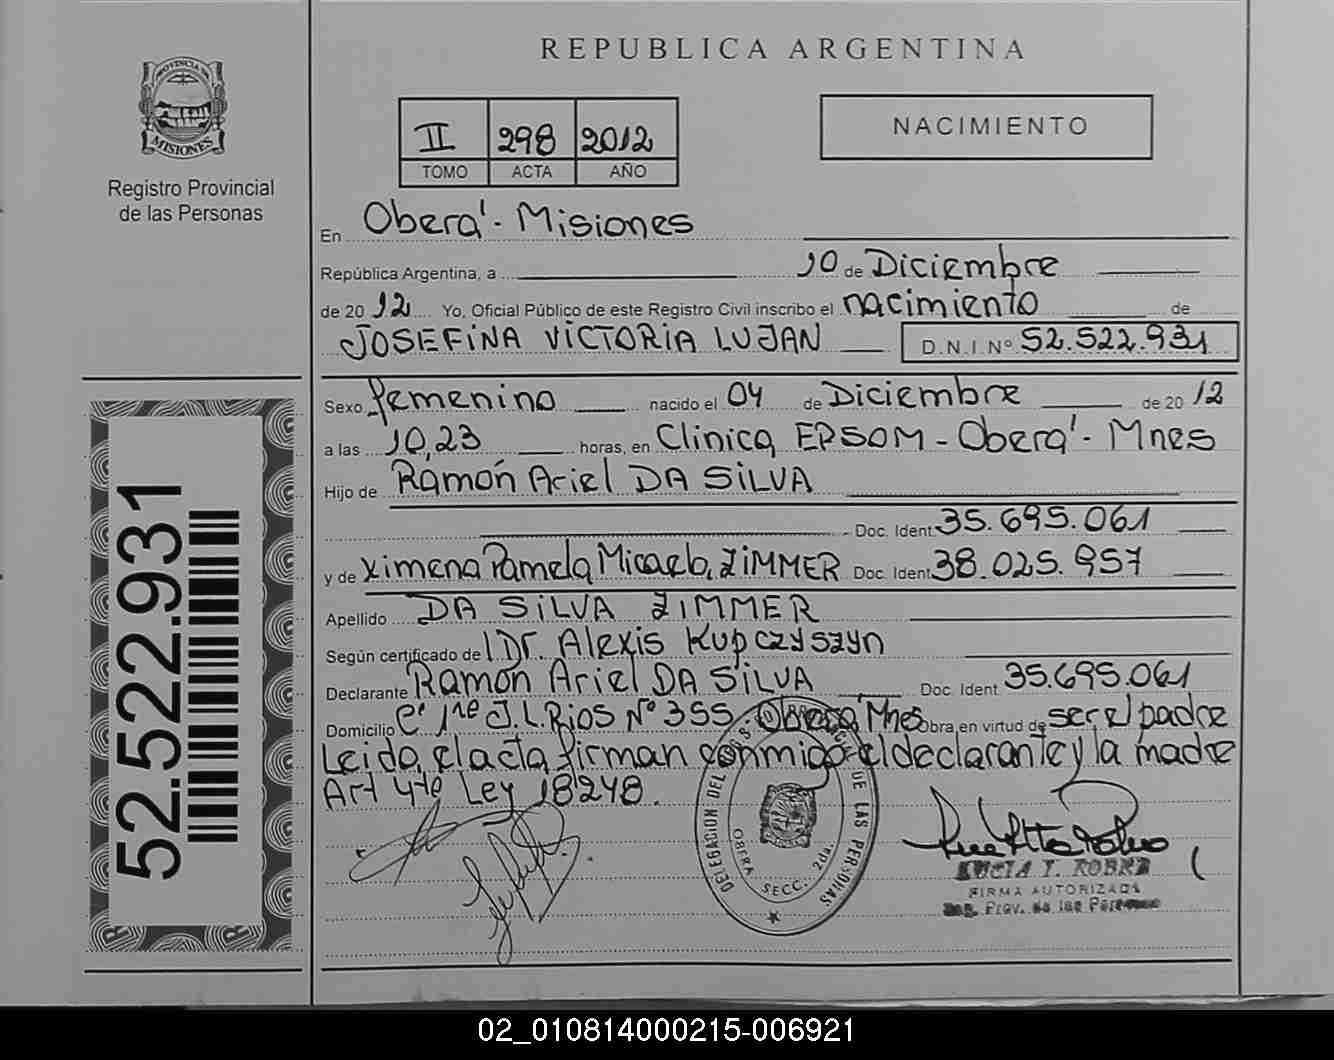 REPUBLICA ARGENTINA
PROVINCIA DE MISIONES
Registro Provincial
de las Personas
II 298 2012
TOMO ACTA AÑO
NACIMIENTO
En Oberá - Misiones
República Argentina, a 10 de Diciembre
de 2012 Yo, Oficial Público de este Registro Civil inscribo el nacimiento de
JOSEFINA VICTORIA LUJAN D.N.I.Nº 52.522.931
Sexo femenino nacido el 04 de Diciembre de 2012
a las 10,23 horas, en Clinica EPSOM - Oberá - Mnes
Hijo de Ramón Ariel DA SILVA
Doc. Ident. 35.695.061
y de Ximena Pamela Micaela ZIMMER Doc. Ident. 38.025.957
Apellido DA SILVA ZIMMER
Según certificado de Dr. Alexis Kupczyszyn
Declarante Ramón Ariel DA SILVA Doc. Ident. 35.695.061
Domicilio J.L.Rios Nº 355 - Oberá Mnes Obra en virtud de ser el padre
Leida el acta firman conmigo el declarante y la madre
Art 4to Ley 18248.
52.522.931
DELEGACION DEL DE LAS PERSONAS
OBERA SECC. 2da.
FIRMA AUTORIZADA
Prov. de las Personas
02_010814000215-006921